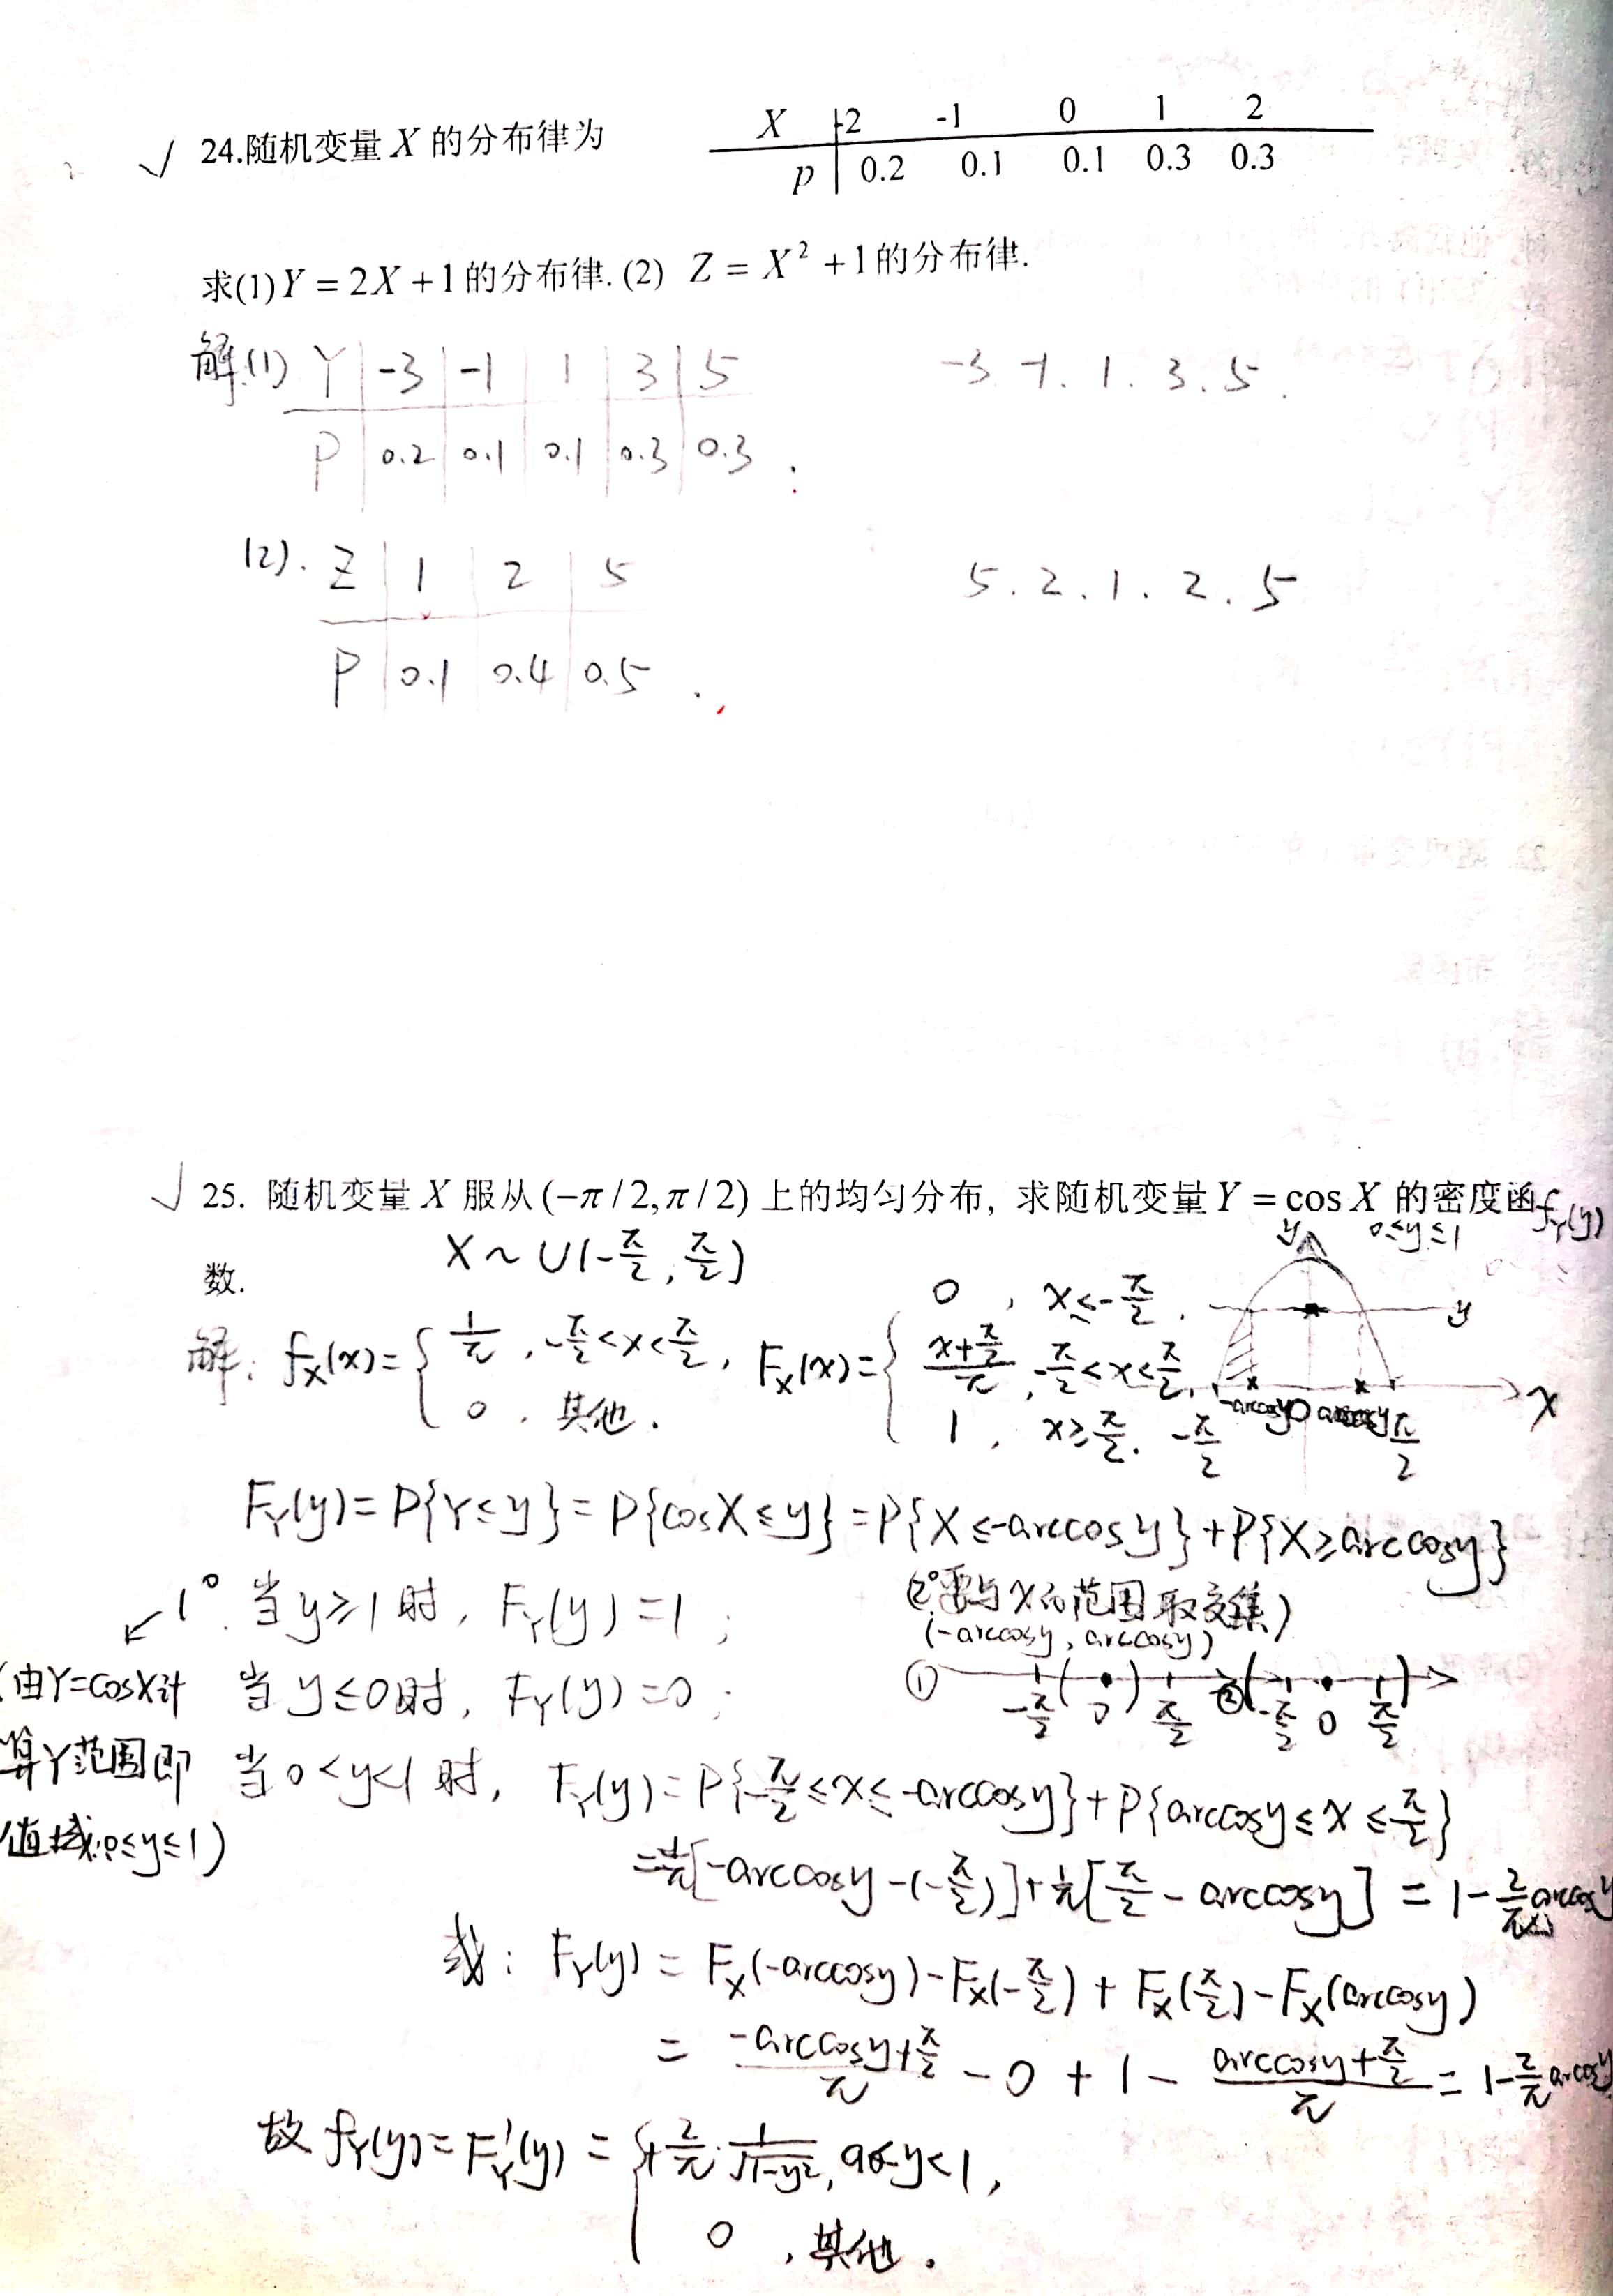 √ 24.随机变量 X 的分布律为
X -2 -1 0 1 2
p 0.2 0.1 0.1 0.3 0.3
求(1)Y = 2X +1的分布律. (2) Z = X² +1的分布律.
解.(1) Y -3 -1 1 3 5
-3. -1. 1. 3. 5.
P 0.2 0.1 0.1 0.3 0.3 .
(2). Z 1 2 5
5. 2. 1. 2. 5
P 0.1 0.4 0.5 .
√ 25. 随机变量 X 服从 (−π/2, π/2) 上的均匀分布, 求随机变量 Y = cos X 的密度函
数.
f_Y(y)
0≤y≤1
X ~ U(-π/2, π/2)
解: f_X(x)= { 1/π , -π/2<x<π/2, 0 , 其他. F_X(x)= { 0 , x≤-π/2 , (x+π/2)/π , -π/2<x<π/2, 1 , x≥π/2.
y
y
-arccosy 0 arccosy x
-π/2 π/2
F_Y(y)=P{Y≤y}=P{cosX≤y}=P{X≤-arccosy}+P{X≥arccosy}
1° 当y≥1时, F_Y(y)=1 ;
(2°要与x的范围取交集)
(-arccosy, arccosy)
① -π/2 ( 0 ) π/2 ② ( -π/2 0 π/2 )
(由Y=cosX计
算Y范围即
值域:0≤y≤1)
当y≤0时, F_Y(y)=0 ;
当0<y<1时, F_Y(y)=P{-π/2≤x≤-arccosy}+P{arccosy≤x≤π/2}
=1/π[-arccosy-(-π/2)]+1/π[π/2-arccosy] = 1-2/π arccosy
或: F_Y(y) = F_X(-arccosy)-F_X(-π/2) + F_X(π/2)-F_X(arccosy)
= (-arccosy+π/2)/π - 0 + 1 - (arccosy+π/2)/π = 1-2/π arccosy
故 f_Y(y)=F'_Y(y) = { +2/π · 1/√(1-y²), 0<y<1,
0 , 其他.